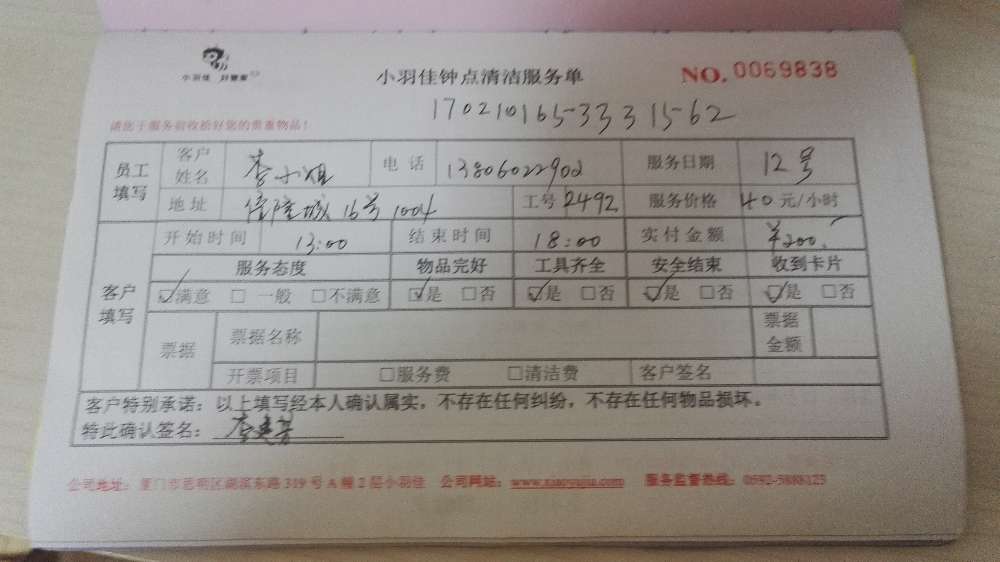 小羽佳 好管家
小羽佳钟点清洁服务单 NO. 0069838
170210165-33315-62
请您于服务前收拾好您的贵重物品!
员工填写 客户姓名 李小姐 电话 13806022902 服务日期 12号
地址 16号1004 工号 2492 服务价格 40元/小时
客户填写 开始时间 13:00 结束时间 18:00 实付金额 ¥200.
服务态度 物品完好 工具齐全 安全结束 收到卡片
☑满意 □一般 □不满意 ☑是 □否 ☑是 □否 ☑是 □否 ☑是 □否
票据 票据名称 票据金额
开票项目 □服务费 □清洁费 客户签名
客户特别承诺:以上填写经本人确认属实,不存在任何纠纷,不存在任何物品损坏。
特此确认签名:
公司地址:厦门市思明区湖滨东路319号A幢2层小羽佳 公司网站:www.xiaoyujia.com 服务监督热线:0592-5888125